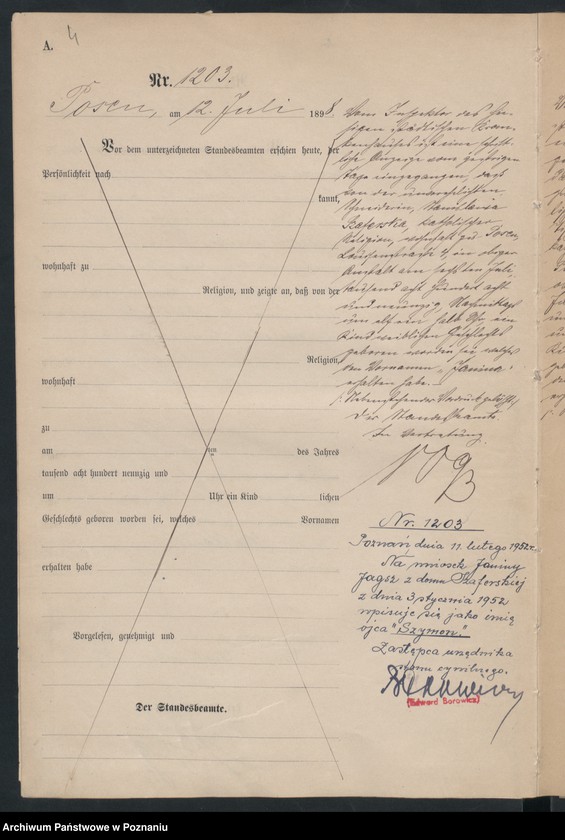 A.
4
Nr. 1203.
Posen, am 12. Juli 1898.
Vor dem unterzeichneten Standesbeamten erschien heute, der
Persönlichkeit nach
kannt,
wohnhaft zu
Religion, und zeigte an, daß von der
Religion,
wohnhaft
zu
am des Jahres
tausend acht hundert neunzig und
um Uhr ein Kind lichen
Geschlechts geboren worden sei, welches Vornamen
erhalten habe
Vorgelesen, genehmigt und
Der Standesbeamte.
Vom Inspektor des hie-
sigen städtischen Kran-
kenhauses ist eine schrift-
liche Anzeige vom gestrigen
Tage eingegangen, daß
von der unverehelichten
Schneiderin, Stanislawa
katholischer
Religion, wohnhaft zu Posen,
in obiger
Anstalt am sechsten Juli
tausend acht hundert acht
und neunzig Vormittags
um elf ein halb Uhr ein
Kind weiblichen Geschlechts
geboren worden sei, welches
den Vornamen "Janina"
erhalten habe.
Nebenstehender Vordruck gelöscht.
Der Standesbeamte.
In Vertretung.
Nr. 1203
Poznań dnia 11. lutego 1952 r.
Na wniosek Janiny
Jagsz z domu Szaforskiej
z dnia 3 stycznia 1952
wpisuje się jako imię
ojca "Szymon."
Zastępca urzędnika
stanu cywilnego.
(Edward Borowicz)
Archiwum Państwowe w Poznaniu